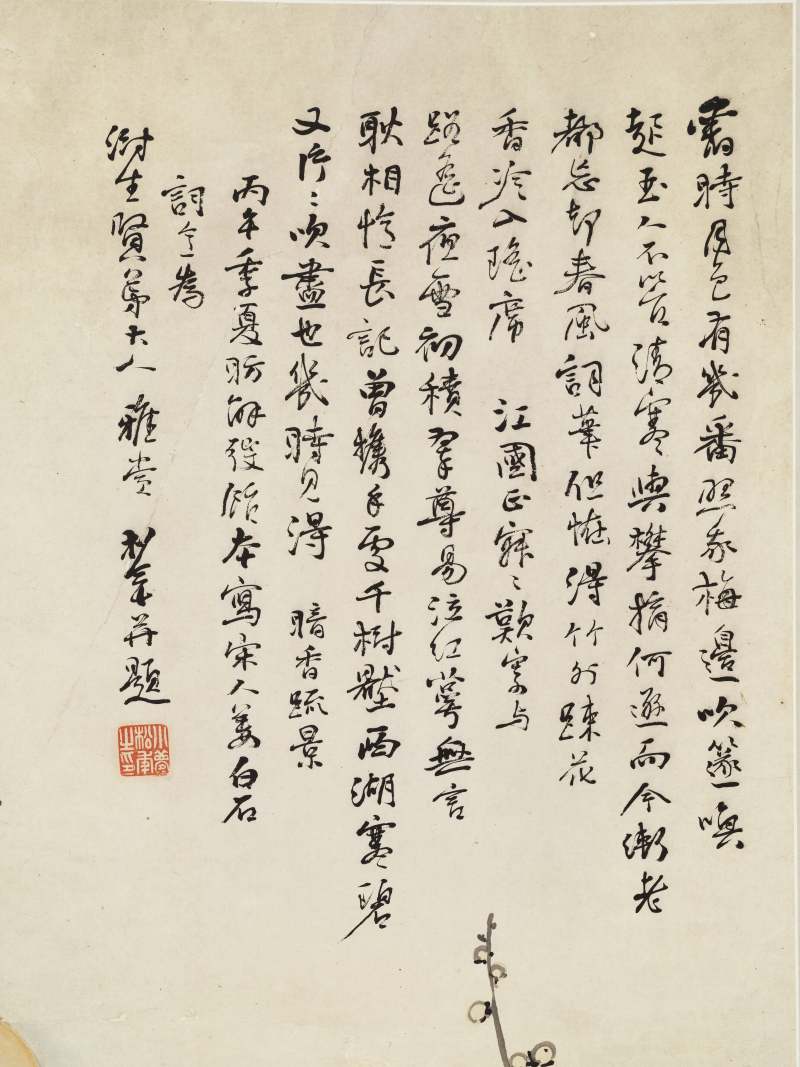 舊時月色有幾番照我梅邊吹篴喚
起玉人不管清寒與攀摘何遜而今漸老
都忘却春風詞筆但怪得竹外踈花
香冷入瑤席 江國正寂〻歎寄与
路遙夜雪初積翠尊易泣紅萼無言
耿相憶長記曾携手處千樹壓西湖寒碧
又片〻吹盡也幾時見得 暗香疏景
丙午季夏昉解弢館本寫宋人姜白石
詞意為
澍生賢弟大人雅賞 松年并題
松年之印